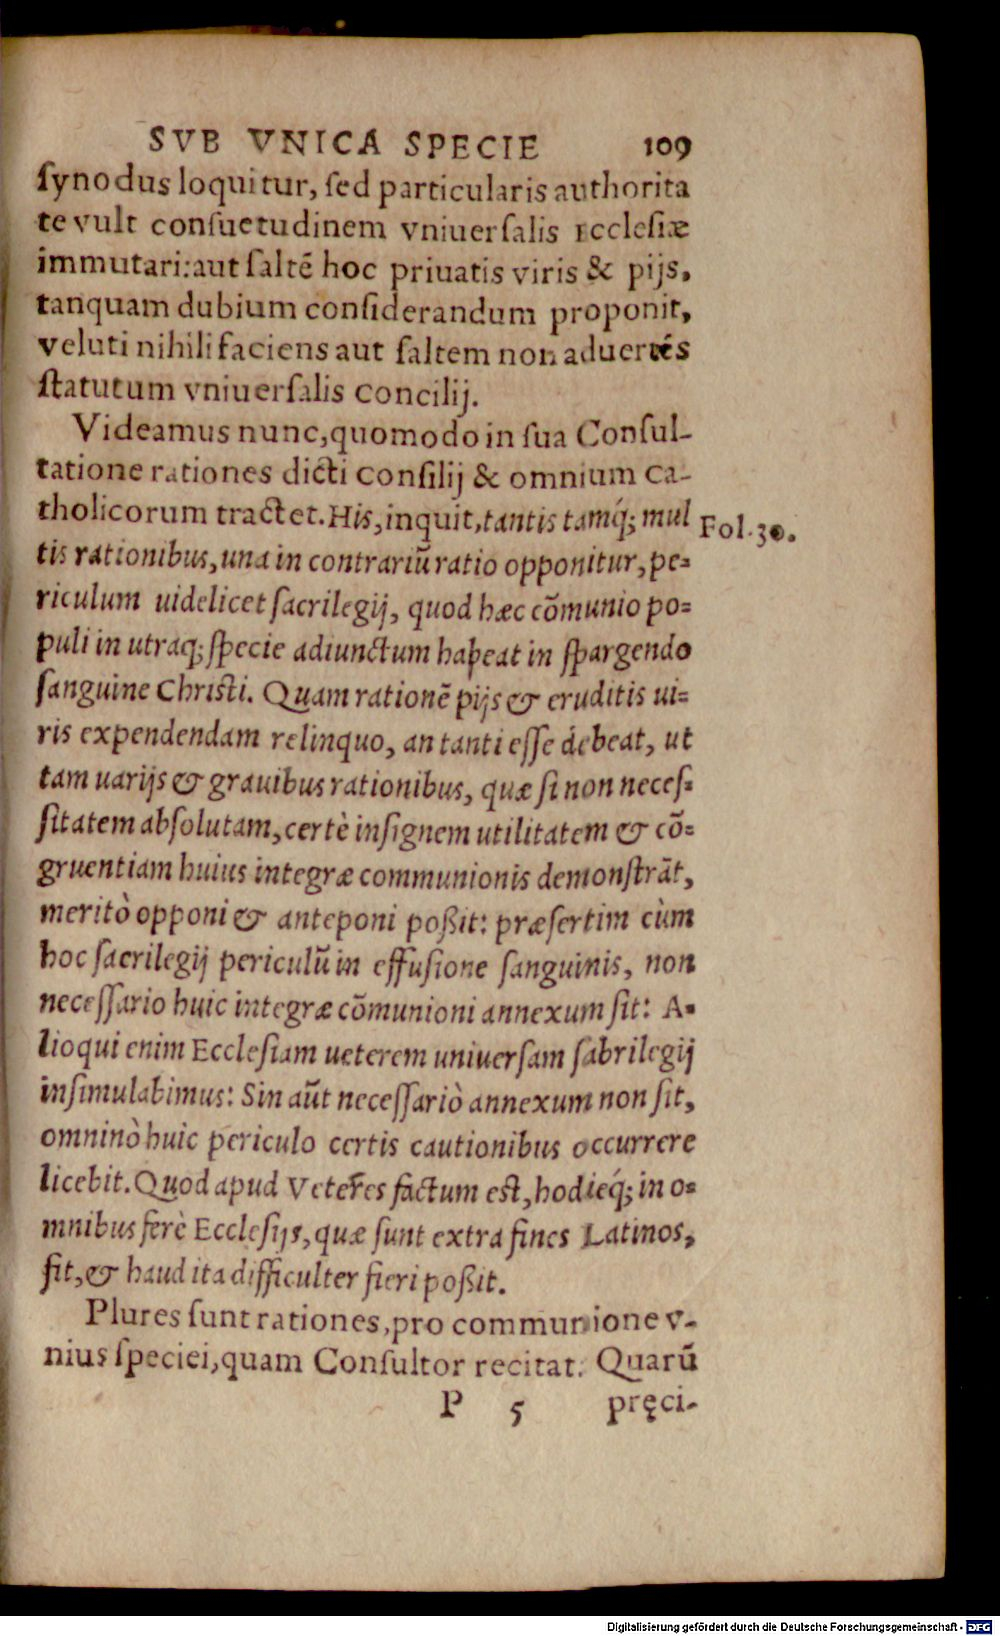 SVB VNICA SPECIE 109
ſynodus loquitur, ſed particularis authorita
te vult conſuetudinem vniuerſalis Eccleſiæ
immutari: aut ſaltē hoc priuatis viris & pijs,
tanquam dubium conſiderandum proponit,
veluti nihili faciens aut ſaltem non aduertēs
ſtatutum vniuerſalis concilij.
Videamus nunc, quomodo in ſua Conſul-
tatione rationes dicti conſilij & omnium ca-
tholicorum tractet. His, inquit, tantis tamq́; mul
Fol. 30.
tis rationibus, una in contrariũ ratio opponitur, pe-
riculum uidelicet ſacrilegij, quod hæc cõmunio po-
puli in utraq; ſpecie adiunctum habeat in ſpargendo
ſanguine Chriſti. Quam rationē pijs & eruditis ui-
ris expendendam relinquo, an tanti eſſe debeat, ut
tam uarijs & grauibus rationibus, quæ ſi non neceſ-
ſitatem abſolutam, certè inſignem utilitatem & cõ-
gruentiam huius integræ communionis demonſtrãt,
meritò opponi & anteponi poßit: præſertim cùm
hoc ſacrilegij periculũ in effuſione ſanguinis, non
neceſſario huic integræ cõmunioni annexum ſit: A-
lioqui enim Eccleſiam ueterem uniuerſam ſabrilegij
inſimulabimus: Sin aũt neceſſariò annexum non ſit,
omninò huic periculo certis cautionibus occurrere
licebit. Quod apud Veteres factum eſt, hodieq́; in o-
mnibus ferè Eccleſijs, quæ ſunt extra fines Latinos,
fit, & haud ita difficulter fieri poßit.
Plures ſunt rationes, pro communione v-
nius ſpeciei, quam Conſultor recitat. Quarũ
P 5 pręci-
Digitalisierung gefördert durch die Deutsche Forschungsgemeinschaft - DFG